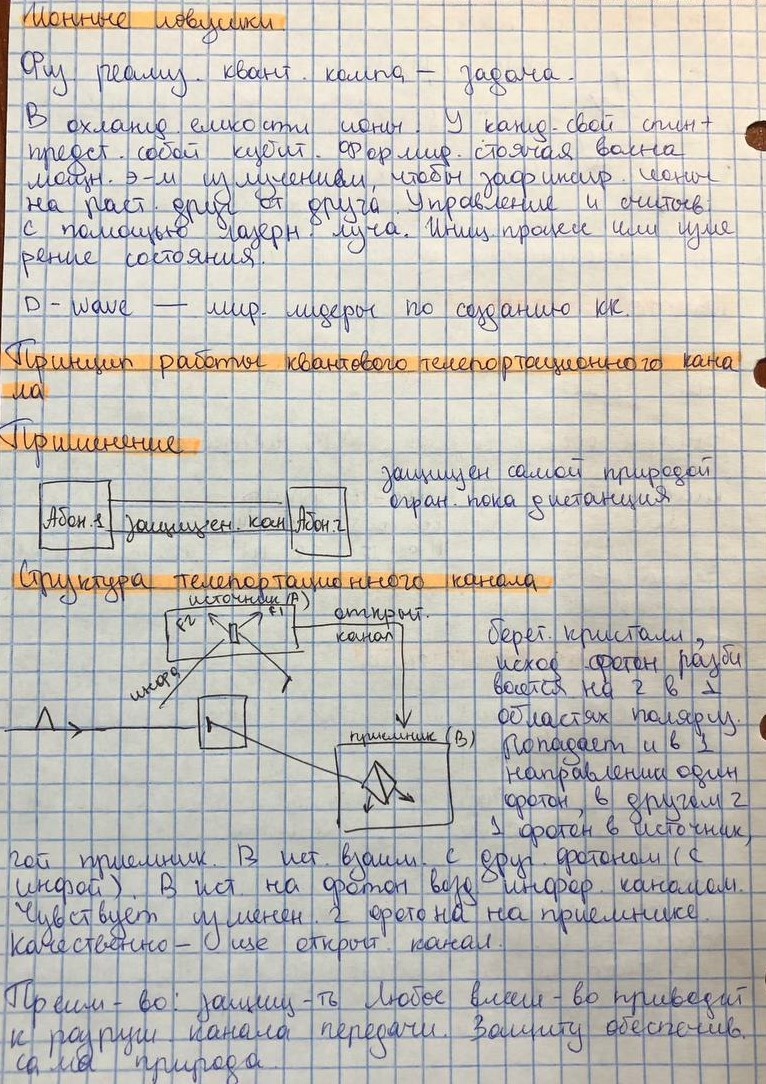 Ионные ловушки
Физ. реализ. квант. компа – задача.
В охлажд. емкости ионы. У кажд. свой спин +
предст. собой кубит. Формир. стоячая волна
мощн. э-м излучением, чтобы зафиксир. ионы
на раст. друг от друга. Управление и считыв.
с помощью лазерн. луча. Иниц. процесс или изме
рение состояния.
D-wave — мир. лидеры по созданию КК.
Принцип работы квантового телепортационного кана
ла
Применение
защищен самой природой
огран. пока дистанция
Абон.1 защищен. кан Абон.2
Структура телепортационного канала
источник (А)
F2 F1
открыт.
канал
инфа
приемник (В)
берет. кристалл,
исход. фотон разби
вается на 2 в 2
областях поляриз.
Попадает и в 1
направлении один
фотон, в другом 2
1 фотон в источник,
гой приемник. В ист. взаим. с друг. фотоном (с
инфой). В ист. на фотон возд. инфор. каналом.
Чувствует изменен. 2 фотона на приемнике.
качественно – еще открыт. канал.
Преим-во: защищ-ть. Любое вмеш-во приводит
к разруш. канала передачи. Защиту обеспечив.
сама природа.